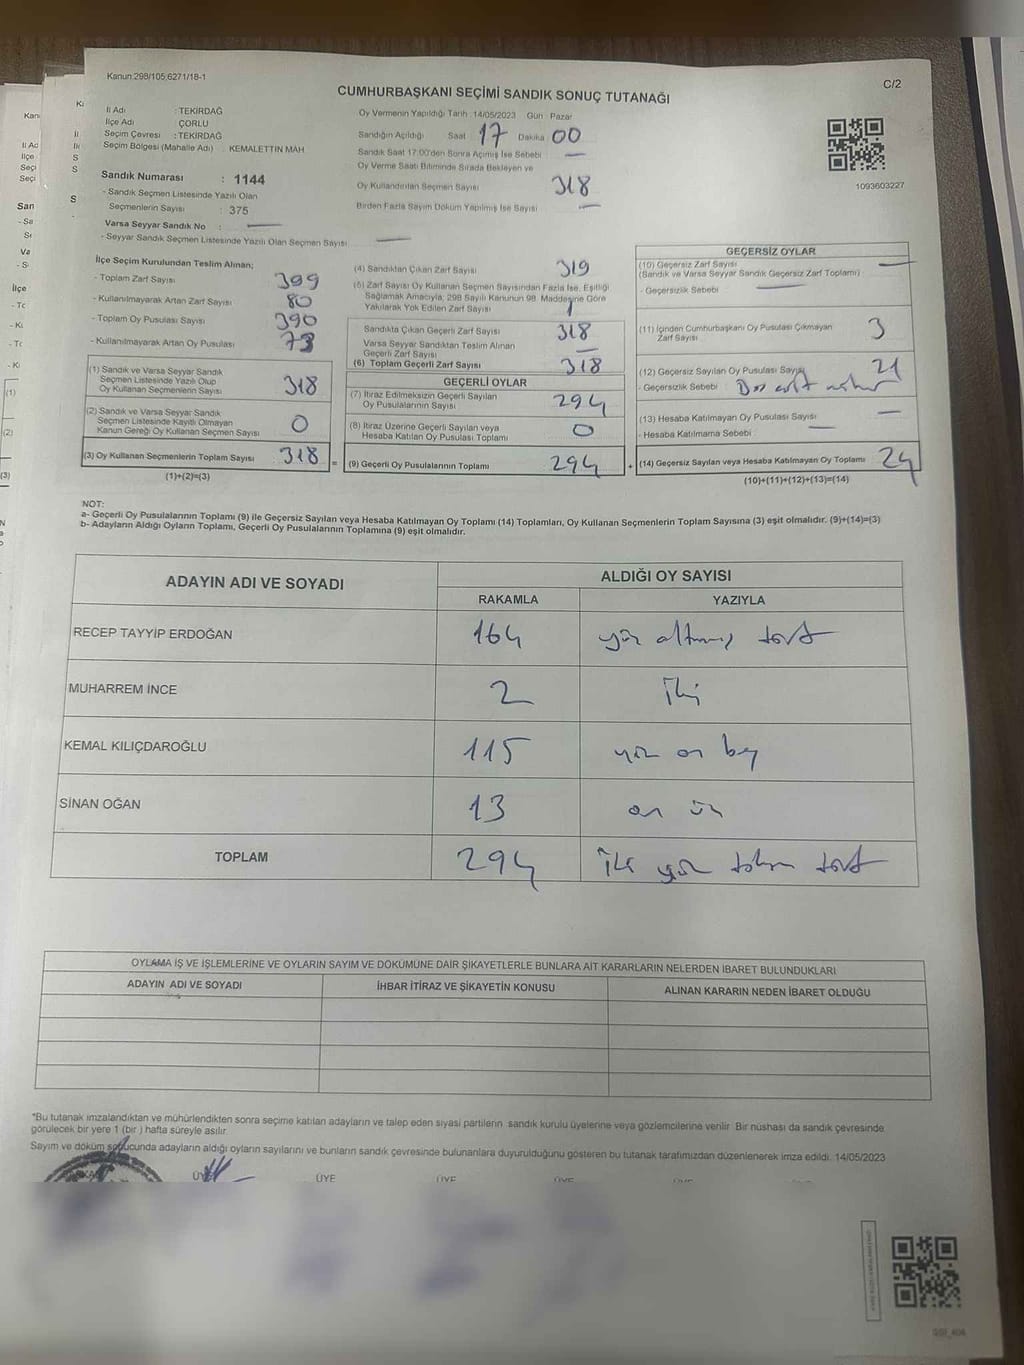 Kanun:298/105;6271/18-1
C/2
CUMHURBAŞKANI SEÇİMİ SANDIK SONUÇ TUTANAĞI
İl Adı : TEKİRDAĞ
İlçe Adı : ÇORLU
Seçim Çevresi : TEKİRDAĞ
Seçim Bölgesi (Mahalle Adı) : KEMALETTIN MAH
Sandık Numarası : 1144
- Sandık Seçmen Listesinde Yazılı Olan
Seçmenlerin Sayısı : 375
Varsa Seyyar Sandık No :
- Seyyar Sandık Seçmen Listesinde Yazılı Olan Seçmen Sayısı
Oy Vermenin Yapıldığı Tarih 14/05/2023 Gün Pazar
Sandığın Açıldığı Saat 17 Dakika 00
Sandık Saat 17:00'den Sonra Açılmış İse Sebebi
Oy Verme Saati Bitiminde Sırada Bekleyen ve
Oy Kullandırılan Seçmen Sayısı 318
Birden Fazla Sayım Döküm Yapılmış İse Sayısı
1093603227
İlçe Seçim Kurulundan Teslim Alınan;
- Toplam Zarf Sayısı 399
- Kullanılmayarak Artan Zarf Sayısı 80
- Toplam Oy Pusulası Sayısı 390
- Kullanılmayarak Artan Oy Pusulası 73
(1) Sandık ve Varsa Seyyar Sandık
Seçmen Listesinde Yazılı Olup
Oy Kullanan Seçmenlerin Sayısı 318
(2) Sandık ve Varsa Seyyar Sandık
Seçmen Listesinde Kayıtlı Olmayan
Kanun Gereği Oy Kullanan Seçmen Sayısı 0
(3) Oy Kullanan Seçmenlerin Toplam Sayısı 318 =
(1)+(2)=(3)
(4) Sandıktan Çıkan Zarf Sayısı 319
(5) Zarf Sayısı Oy Kullanan Seçmen Sayısından Fazla İse, Eşitliği
Sağlamak Amacıyla, 298 Sayılı Kanunun 98. Maddesine Göre
Yakılarak Yok Edilen Zarf Sayısı 1
Sandıkta Çıkan Geçerli Zarf Sayısı 318
Varsa Seyyar Sandıktan Teslim Alınan
Geçerli Zarf Sayısı
(6) Toplam Geçerli Zarf Sayısı 318
GEÇERLİ OYLAR
(7) İtiraz Edilmeksizin Geçerli Sayılan
Oy Pusulalarının Sayısı 294
(8) İtiraz Üzerine Geçerli Sayılan veya
Hesaba Katılan Oy Pusulası Toplamı 0
(9) Geçerli Oy Pusulalarının Toplamı 294 +
GEÇERSİZ OYLAR
(10) Geçersiz Zarf Sayısı
(Sandık ve Varsa Seyyar Sandık Geçersiz Zarf Toplamı)
- Geçersizlik Sebebi
(11) İçinden Cumhurbaşkanı Oy Pusulası Çıkmayan
Zarf Sayısı 3
(12) Geçersiz Sayılan Oy Pusulası Sayısı 21
- Geçersizlik Sebebi :
(13) Hesaba Katılmayan Oy Pusulası Sayısı
- Hesaba Katılmama Sebebi :
(14) Geçersiz Sayılan veya Hesaba Katılmayan Oy Toplamı 24
(10)+(11)+(12)+(13)=(14)
NOT:
a- Geçerli Oy Pusulalarının Toplamı (9) ile Geçersiz Sayılan veya Hesaba Katılmayan Oy Toplamı (14) Toplamları, Oy Kullanan Seçmenlerin Toplam Sayısına (3) eşit olmalıdır. (9)+(14)=(3)
b- Adayların Aldığı Oyların Toplamı, Geçerli Oy Pusulalarının Toplamına (9) eşit olmalıdır.
ADAYIN ADI VE SOYADI ALDIĞI OY SAYISI
RAKAMLA YAZIYLA
RECEP TAYYİP ERDOĞAN 164 yüz altmış dört
MUHARREM İNCE 2 iki
KEMAL KILIÇDAROĞLU 115 yüz on beş
SİNAN OĞAN 13 on üç
TOPLAM 294 iki yüz doksan dört
OYLAMA İŞ VE İŞLEMLERİNE VE OYLARIN SAYIM VE DÖKÜMÜNE DAİR ŞİKAYETLERLE BUNLARA AİT KARARLARIN NELERDEN İBARET BULUNDUKLARI
ADAYIN ADI VE SOYADI İHBAR İTİRAZ VE ŞİKAYETİN KONUSU ALINAN KARARIN NEDEN İBARET OLDUĞU
*Bu tutanak imzalandıktan ve mühürlendikten sonra seçime katılan adayların ve talep eden siyasi partilerin sandık kurulu üyelerine veya gözlemcilerine verilir. Bir nüshası da sandık çevresinde
görülecek bir yere 1 (bir ) hafta süreyle asılır.
Sayım ve döküm sonucunda adayların aldığı oyların sayılarını ve bunların sandık çevresinde bulunanlara duyurulduğunu gösteren bu tutanak tarafımızdan düzenlenerek imza edildi. 14/05/2023
ÜYE ÜYE ÜYE ÜYE ÜYE